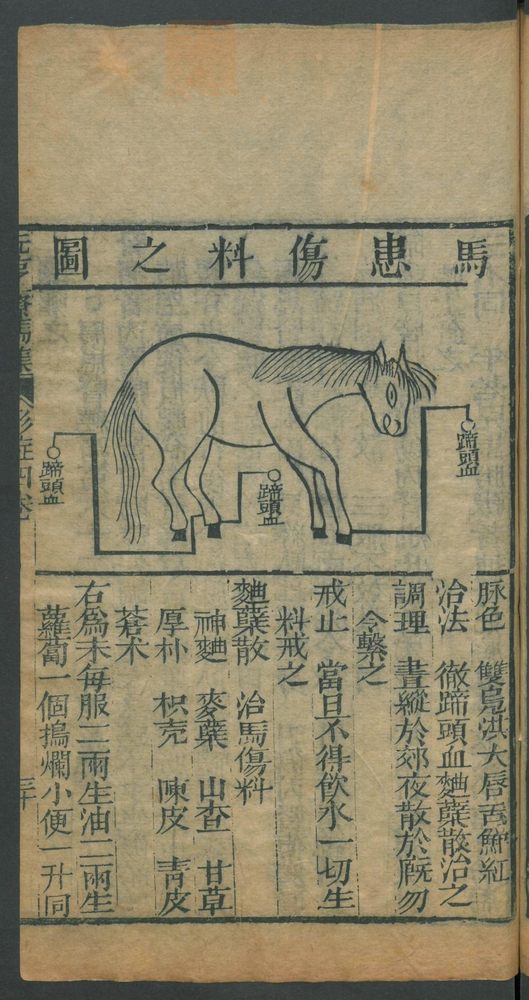 馬患傷料之圖
蹄頭血
蹄頭血
蹄頭血
脉色 雙鳬洪大唇舌鮮紅
治法 徹蹄頭血麯蘖散治之
調理 晝縱於郊夜散於厩勿
令繫之
戒止 當旦不得飲水一切生
料戒之
麯蘖散 治馬傷料
神麯 麥蘖 山查 甘草
厚朴 枳壳 陳皮 青皮
蒼术
右爲末每服二兩生油二兩生
蘿蔔一個搗爛小便一升同